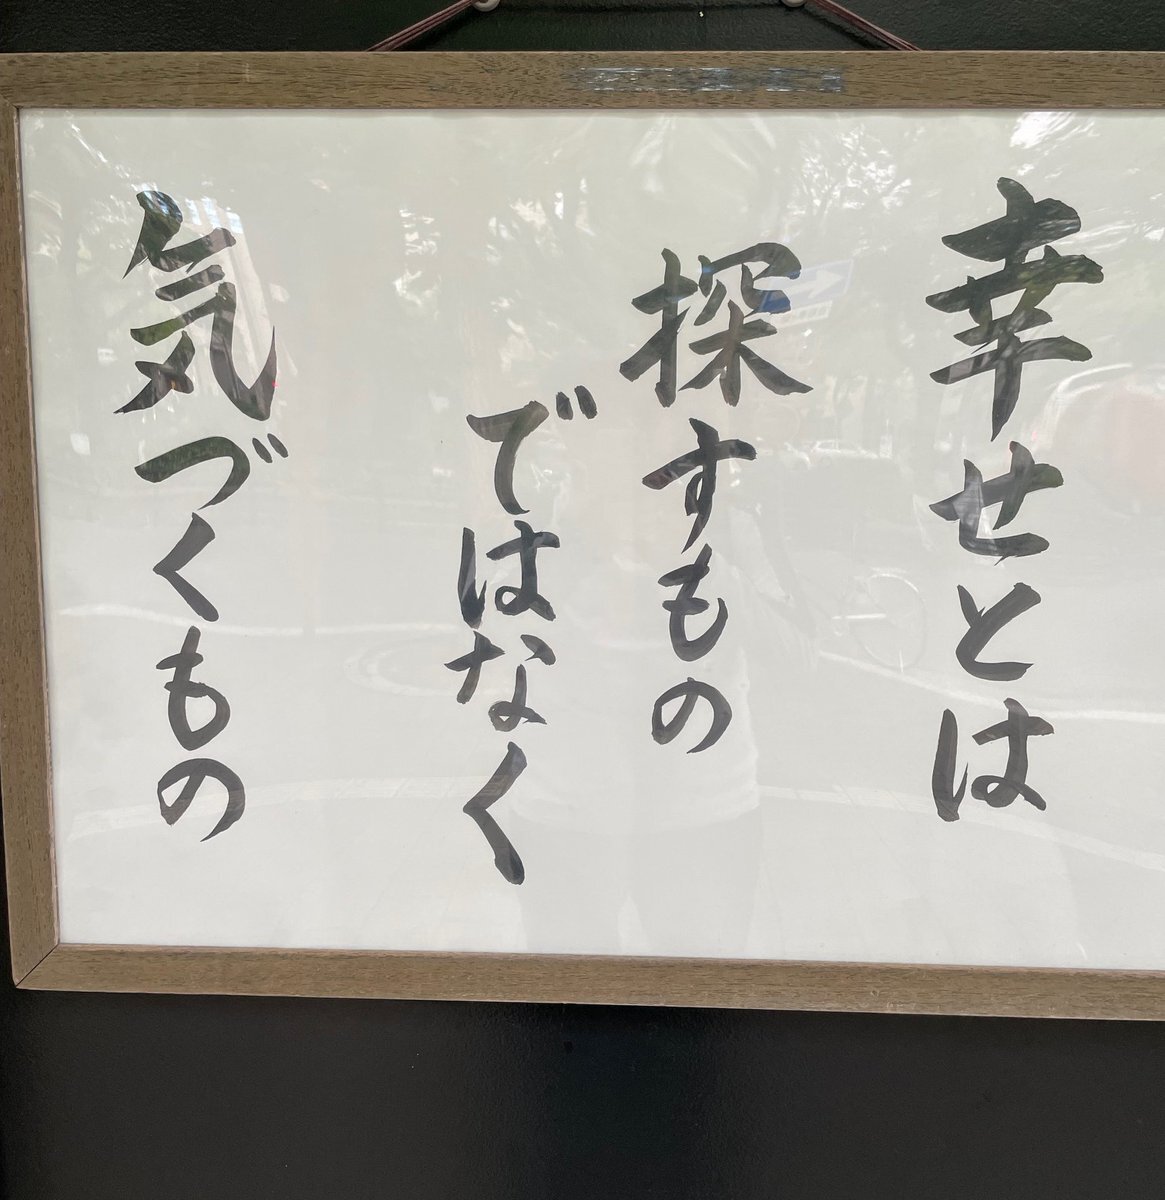 幸せとは
探すもの
ではなく
気づくもの